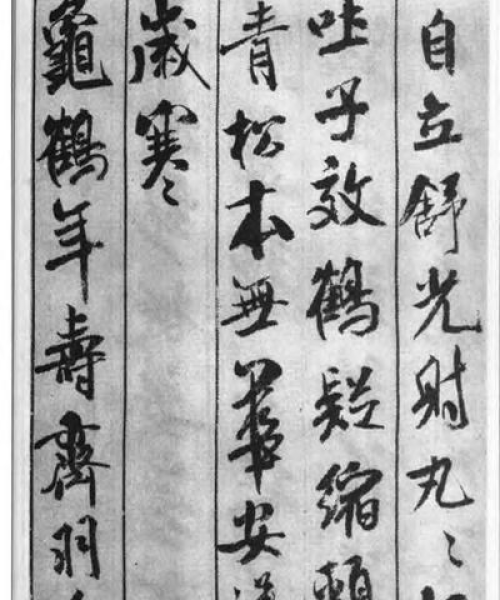 自立舒光射丸〻
吐子效鶴疑縮
青松本無華安
歲寒
龜鶴年壽齊羽